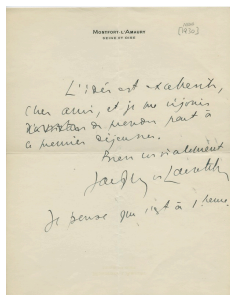 MONTFORT-L'AMAURY
SEINE-ET-OISE
[1930]
L'idée est excellente,
cher ami, et je me réjouis
de prendre part à
ce premier déjeuner.
Bien cordialement
Jacques de Lacretelle
Je pense que c'est à 1 heure.